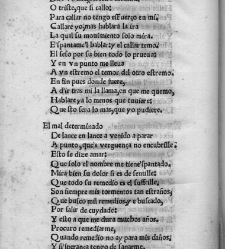 O triste, que si callo?
Para callar no tengo esfuerço en mi,
Callarè yo, mas hablarà la ira
La qual su movimiento solo mira.
Espantame el hablar y el callar temo,
El seso por su bien todo lo procura
Y en va punto me lleva
A yo estremo el temor del otro estremo.
En fin pues el dolor
A dezir tras mi la llama, en que me quemo,
Hablarè ya lo menos que tuviere;
Que esto serà lo mas, que yo pudiere.
El mal determinado
De lance en lance a venido a parar
A punto, que es verguença no encubrille.
Esto se dize amar:
Que solo el nombre me tiene espantado,
Mira bien su dolor si es de sentille:
Que todo su remedio es el suffrille.
Son siempre mis tormentos tan estraños,
Que busco mil remedios, e suscado,
Por salir de cuydado:
Y ello a que me dura muchos años,
Procuro remediarme,
Quando remedio no ay para mis daños,
Y si sperança tengo de sanarme.